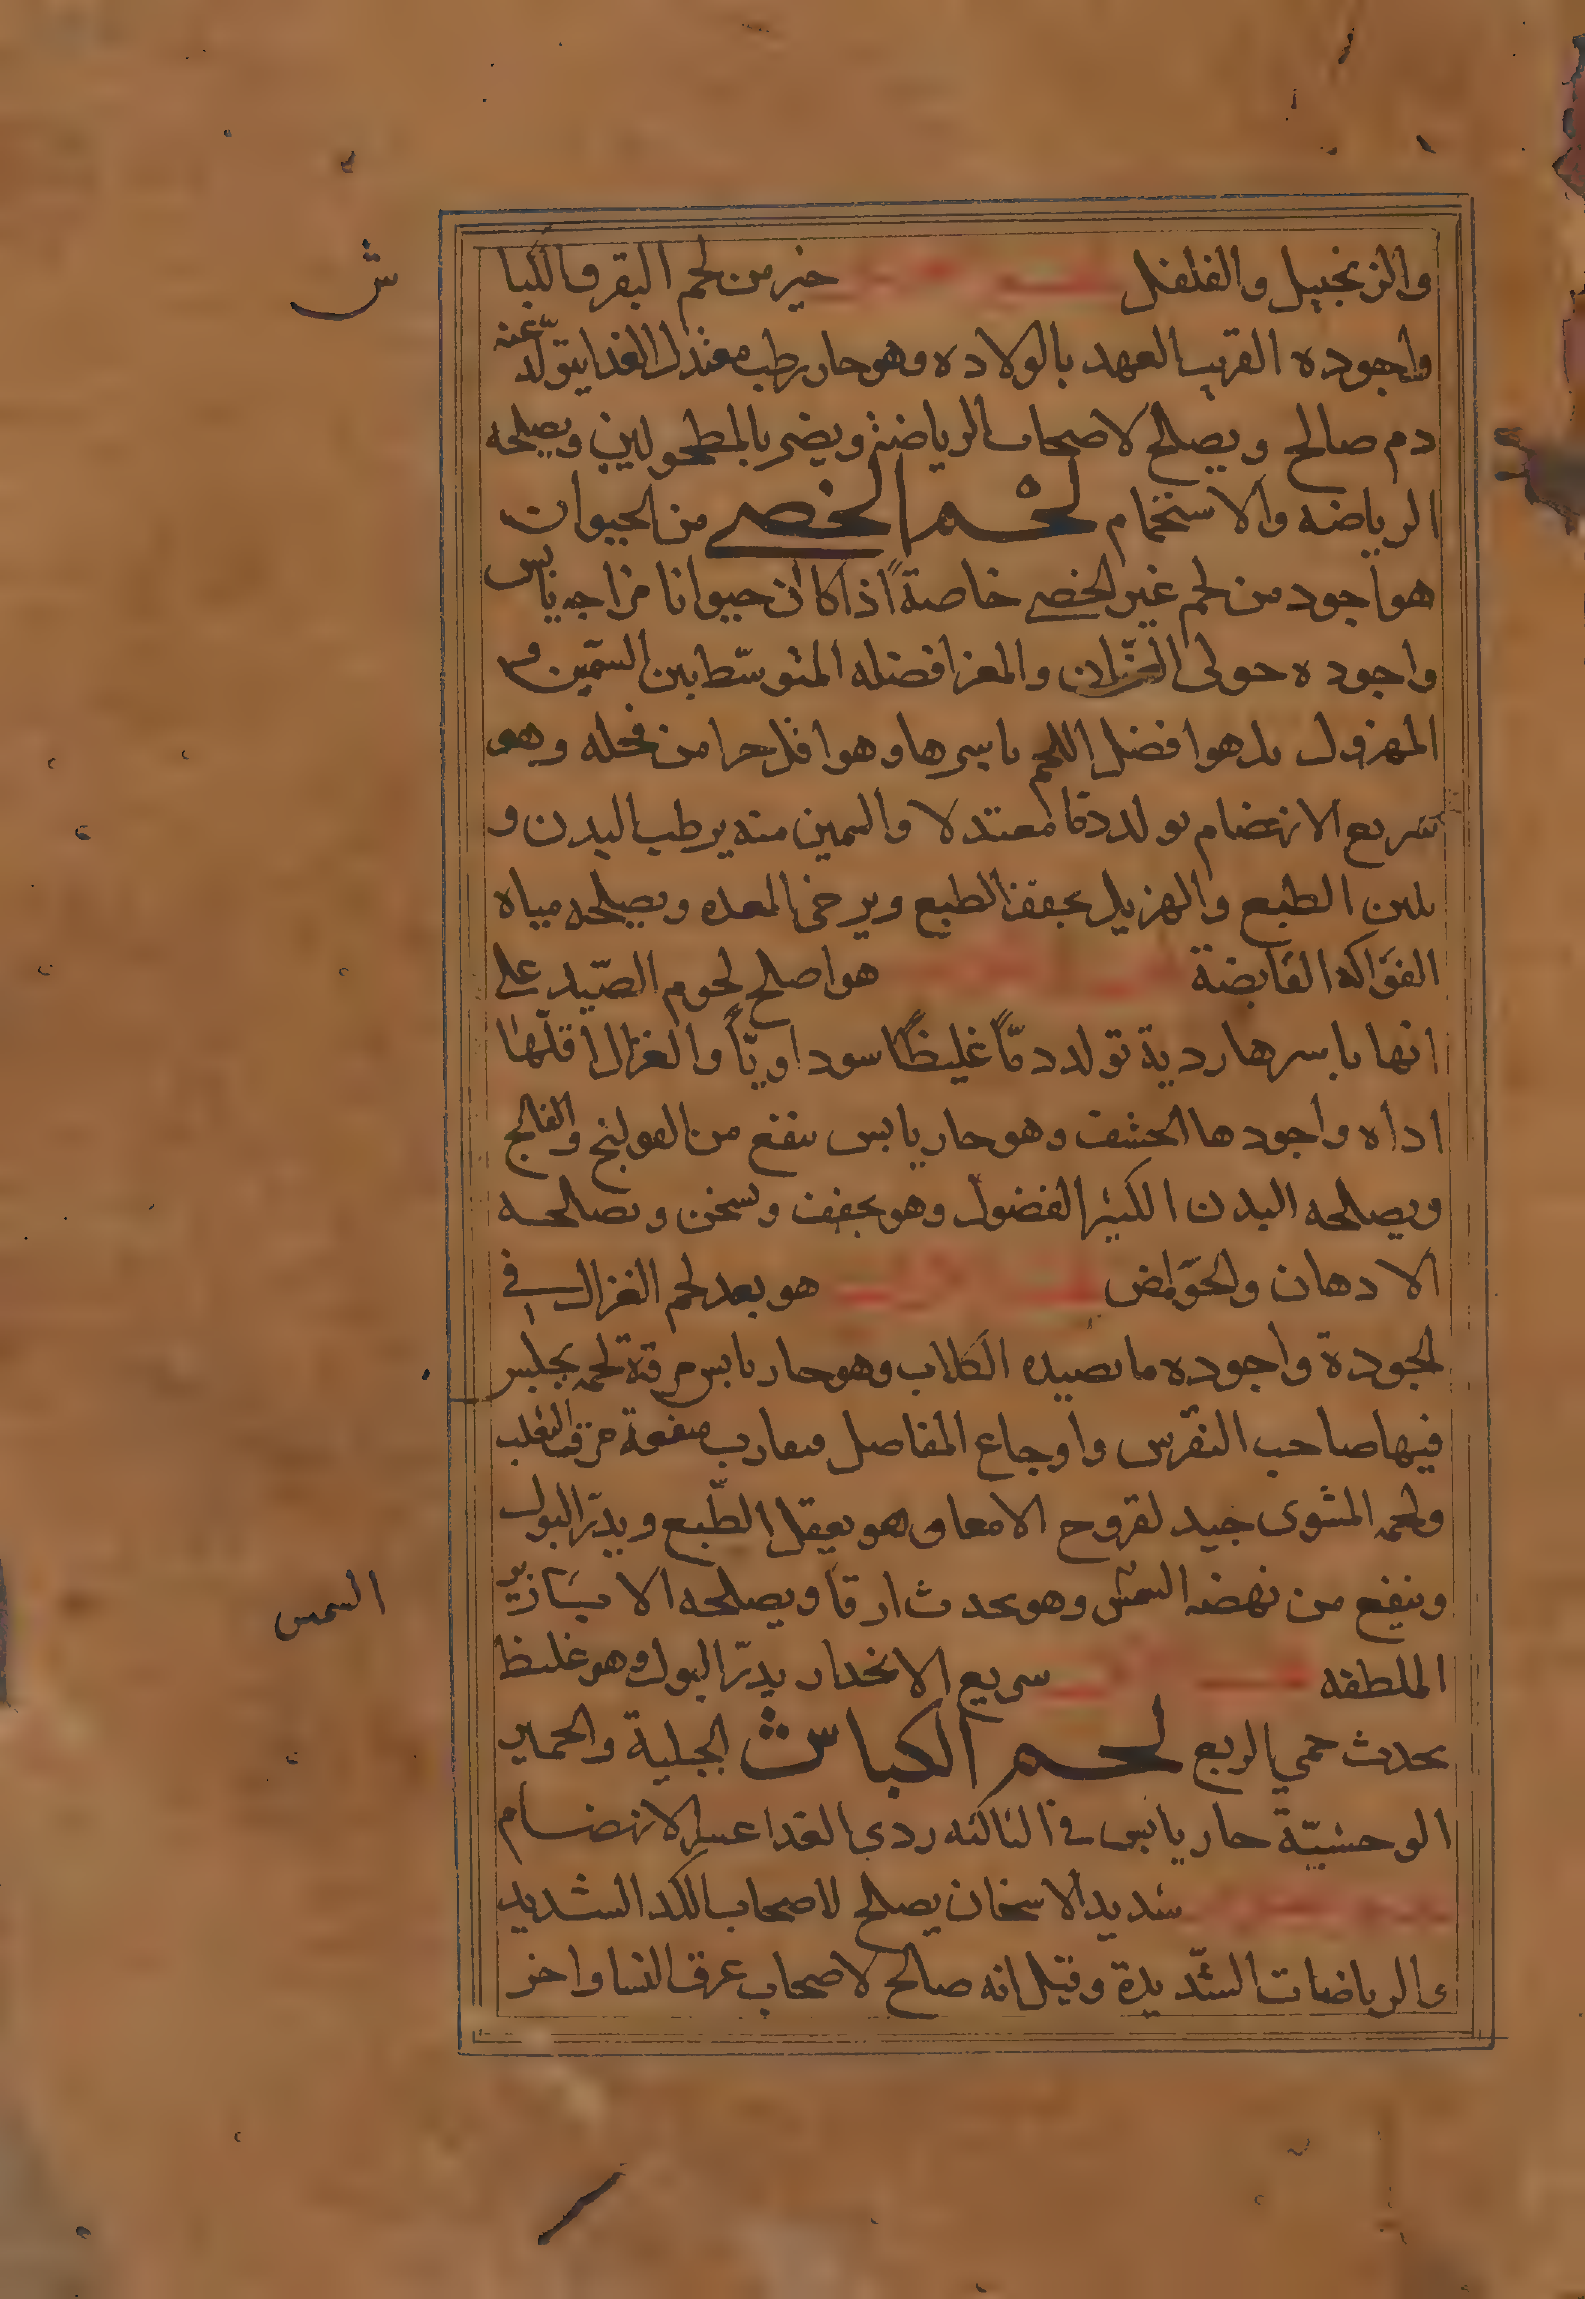 والزنجبيل والفلفل خير من لحم البقر والكبا
ش
واجوده القريب العهد بالولاده وهو حار رطب معتدل الغذا يتولد عنه
دم صالح ويصلح لاصحاب الرياضة ويضر بالمطحولين ويصلحه
الرياضه والاستحمام لحم الخصي من الحيوان
هو اجود من لحم غير الخصي خاصةً اذا كان حيوانا مزاجه يابس
واجوده حولى والمعز افضله المتوسّط بين السّمين و
المهزول بل هو افضل اللحم باسرها وهو اقل حرا من فحله وهو
سريع الانهضام يولد دمًا معتدلا والسمين منه يرطب البدن و
يلين الطبع والهزيل يجفف الطبع ويرخى المعده ويصلحه مياه
الفواكه القابضة هو اصلح لحوم الصّيد على
انها باسرها ردية تولد دمّاً غليظًا سوداويّاً والغزال اقلّها
اداه واجودها الخشف وهو حار يابس ينفع من القولنج والفالج
ويصلحه البدن الكثير الفضول وهو يجفف ويسخن ويصالحه
الادهان والحوامض هو بعد لحم الغزال في
الجودة واجوده ما تصيده الكلاب وهو حار يابس مرقة لحمه يجلس
فيها صاحب النقرس واوجاع المفاصل فيقارب منفعة مرق الثعلب
ولحمه المشوى جيد لقروح الامعا وهو يعقل الطّبع ويدرّ البول
وينفع من نهضه السمش وهو يحدث ارقا ويصلحه الابازير
السمس
الملطفه سريع الانحدار يدرّ البول وهو غليظ
يحدث حمي الربع لحم الكباش الجبلية والحمير
الوحشيّة حار يابس في الثالثه ردى الغذا عسر الانهضام
شديد الاسخان يصلح لاصحاب الكد الشديد
والرياضات الشّديدة وقيل انه صالح لاصحاب عرق النسا واخر